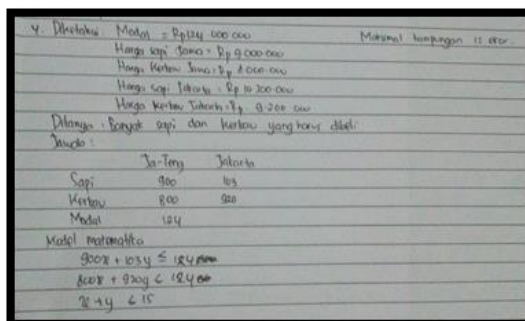 4. Diketahui Modal = Rp124 000 000 Maksimal tampungan 15 ekor.
Harga sapi Jama = Rp 9 000 000
Harga Kerbau Jama = Rp 8 000 000
Harga sapi Jakarta = Rp 10 300 000
Harga Kerbau Jakarta = Rp 9 200 000
Ditanya : Banyak sapi dan kerbau yang harus dibeli
Jawab :
Ja-Teng Jakarta
Sapi 900 103
Kerbau 800 920
Modal 124
Model matematika
900x + 103y ≤ 124
800x + 920y < 124
x + y < 15